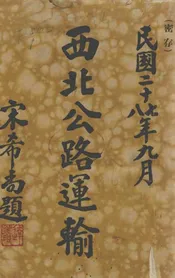 民國二十七八年九月
西北公路運輸
宋希尚題